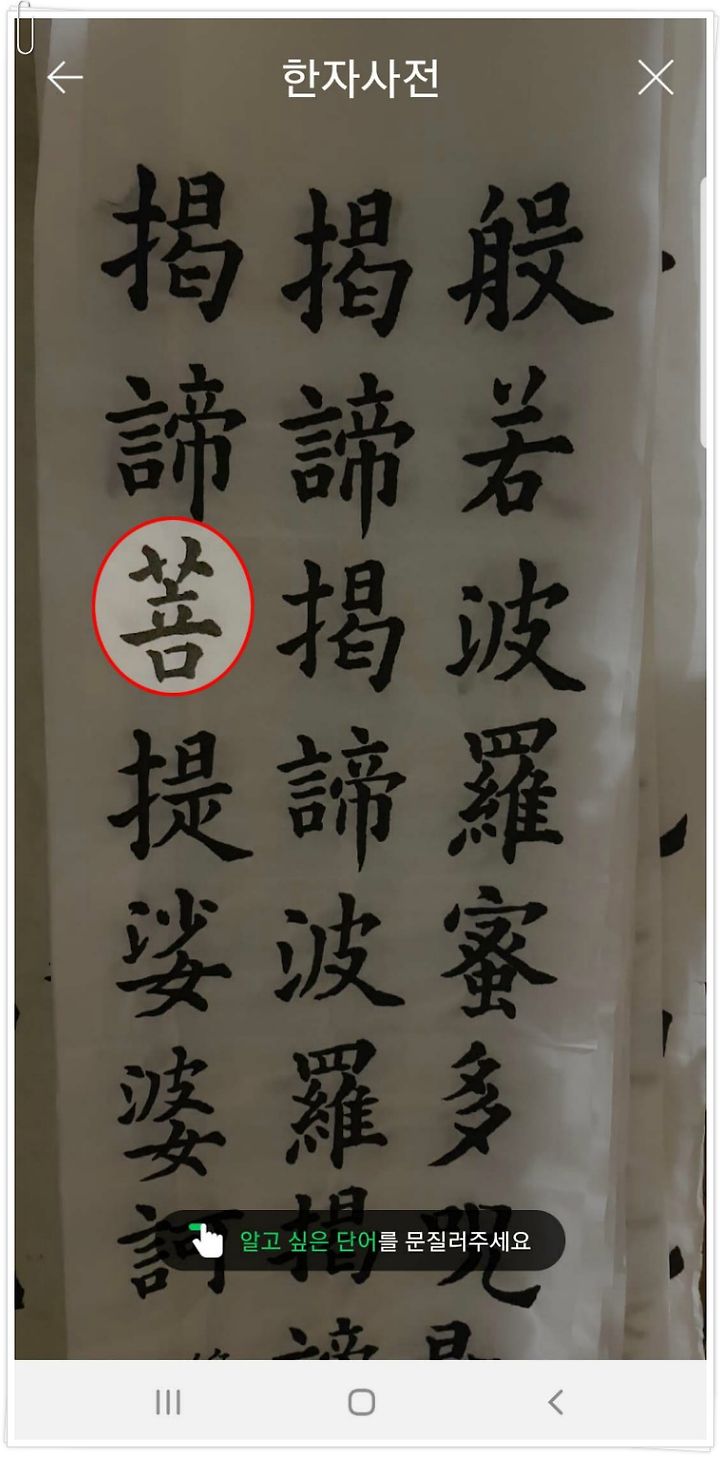 한자사전
般若波羅蜜多呪
揭諦揭諦波羅揭諦
揭諦菩提娑婆訶
알고 싶은 단어를 문질러주세요